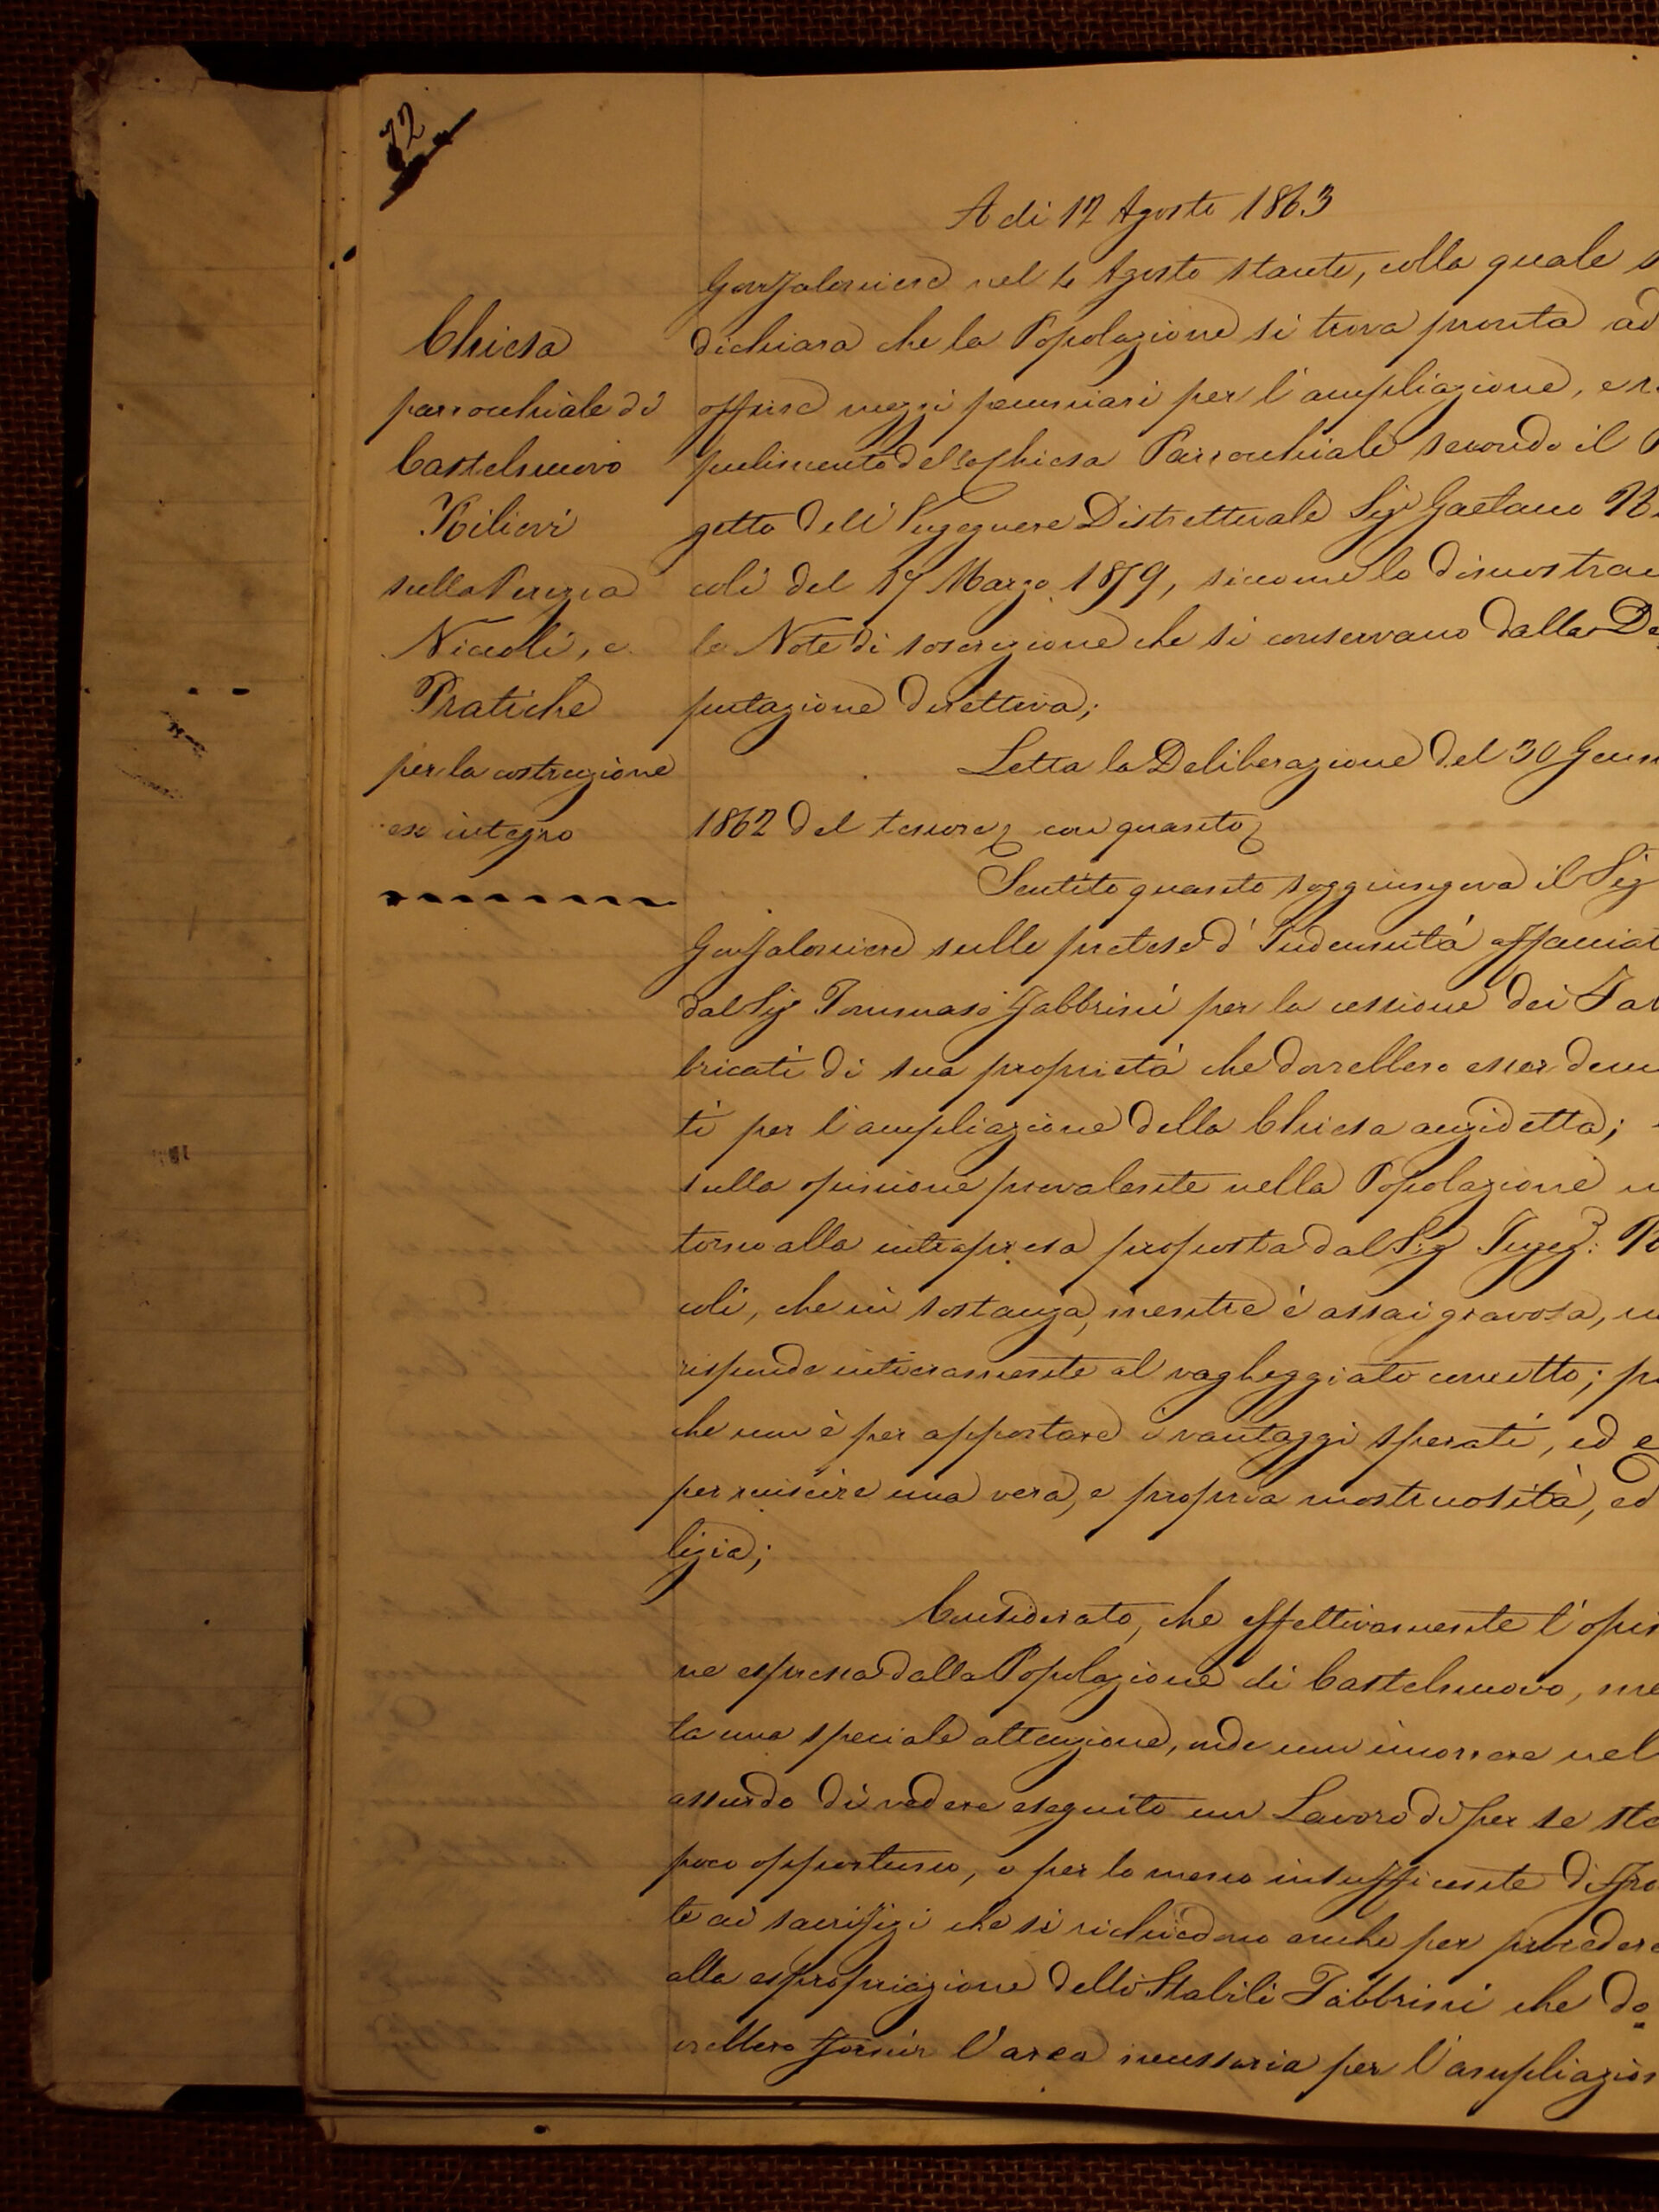 72
A di 12 Agosto 1863
Chiesa
parrocchiale di
Castelnuovo
Rilievi
sulla Perizia
Niccoli, e
Pratiche
per la costruzione
ex integro
Gonfaloniere nel 4 Agosto stante, colla quale s
dichiara che la Popolazione si trova pronta ad
offrire mezzi pecuniari per l'ampliazione, e r
pulimento della Chiesa Parrocchiale secondo il P
getto dell'Ingegnere Distrettuale Sigr Gaetano N
coli del 17 Marzo 1859, siccome lo dimostran
le Note di soscrizione che si conservano dalla De
putazione direttiva;
Letta la Deliberazione del 30 Genn
1862 del tenore con quanto
Sentito quanto soggiungeva il Sig
Gonfaloniere sulle pretese d'Indennità affacciat
dal Sig Tommaso Fabbrini per la cessione dei Fab
bricati di sua proprietà che dovrebbero esser demo
ti per l'ampliazione della Chiesa anzidetta;
sulla opinione prevalente nella Popolazione in
torno alla intrapresa proposta dal Sig Ingeg: N
coli, che in sostanza, mentre è assai gravosa, n
risponde intieramente al vagheggiato concetto; p
che non è per apportare i vantaggi sperati, ed e
per riuscire una vera, e propria mostruosità, ed
lizia;
Considerato, che effettivamente l'opin
ne espressa dalla Popolazione di Castelnuovo, me
ta una speciale attenzione, onde non incorrere nel
assurdo di vedere eseguito un Lavoro di per se ste
poco opportuno, o per lo meno insufficente di fro
te ai sacrifizi che si richiedono anche per procedere
alla espropriazione delli Stabili Fabbrini che do
vrebbero fornir l'area necessaria per l'ampliazion